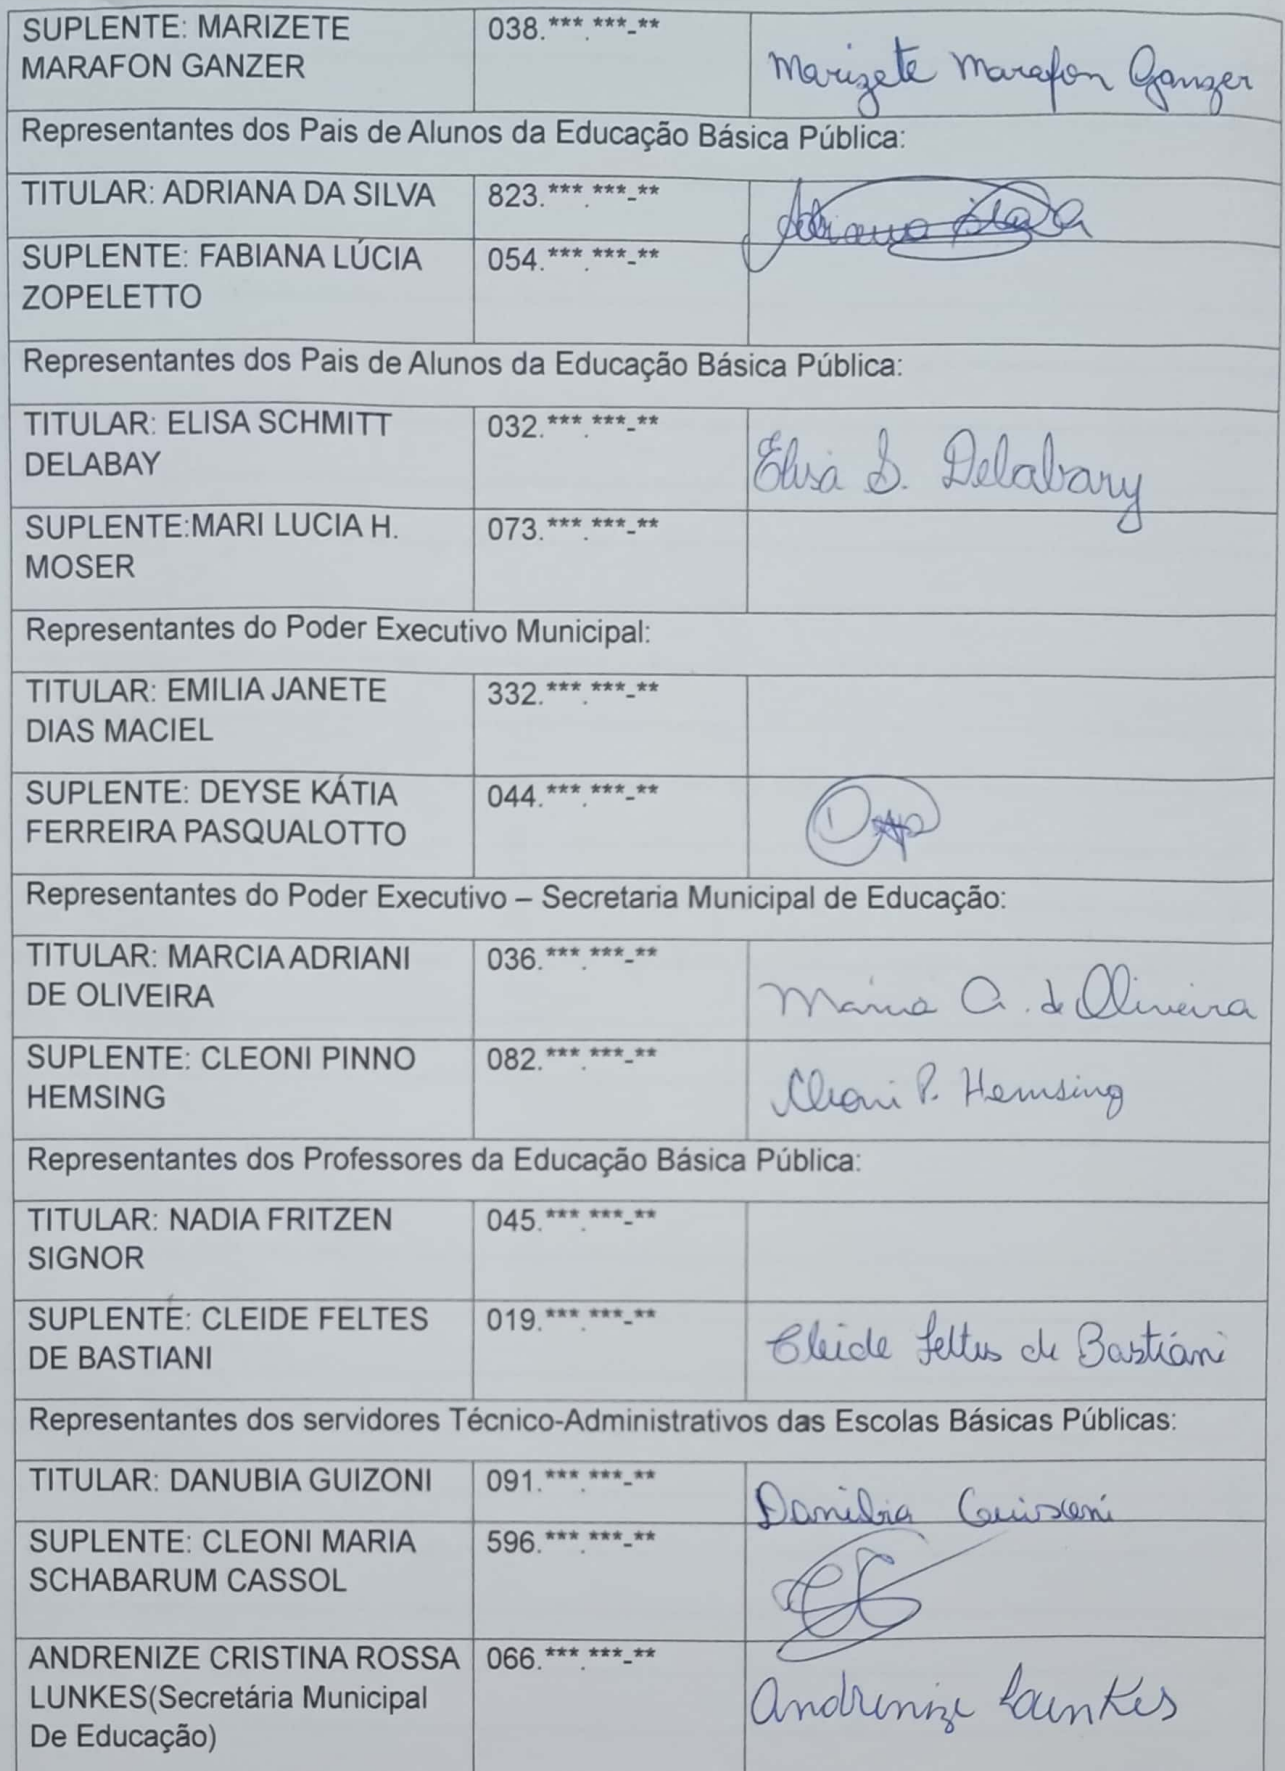 SUPLENTE: MARIZETE
MARAFON GANZER
038.***.***-**
Marizete Marafon Ganzer
Representantes dos Pais de Alunos da Educação Básica Pública:
TITULAR: ADRIANA DA SILVA
823.***.***-**
Adriana Silva
SUPLENTE: FABIANA LÚCIA
ZOPELETTO
054.***.***-**
Representantes dos Pais de Alunos da Educação Básica Pública:
TITULAR: ELISA SCHMITT
DELABAY
032.***.***-**
Elisa S. Delabary
SUPLENTE:MARI LUCIA H.
MOSER
073.***.***-**
Representantes do Poder Executivo Municipal:
TITULAR: EMILIA JANETE
DIAS MACIEL
332.***.***-**
SUPLENTE: DEYSE KÁTIA
FERREIRA PASQUALOTTO
044.***.***-**
Representantes do Poder Executivo – Secretaria Municipal de Educação:
TITULAR: MARCIA ADRIANI
DE OLIVEIRA
036.***.***-**
Márcia A. de Oliveira
SUPLENTE: CLEONI PINNO
HEMSING
082.***.***-**
Cleoni P. Hemsing
Representantes dos Professores da Educação Básica Pública:
TITULAR: NADIA FRITZEN
SIGNOR
045.***.***-**
SUPLENTE: CLEIDE FELTES
DE BASTIANI
019.***.***-**
Cleide Feltes de Bastiani
Representantes dos servidores Técnico-Administrativos das Escolas Básicas Públicas:
TITULAR: DANUBIA GUIZONI
091.***.***-**
Danúbia Guizoni
SUPLENTE: CLEONI MARIA
SCHABARUM CASSOL
596.***.***-**
ANDRENIZE CRISTINA ROSSA
LUNKES(Secretária Municipal
De Educação)
066.***.***-**
Andrenize Lunkes